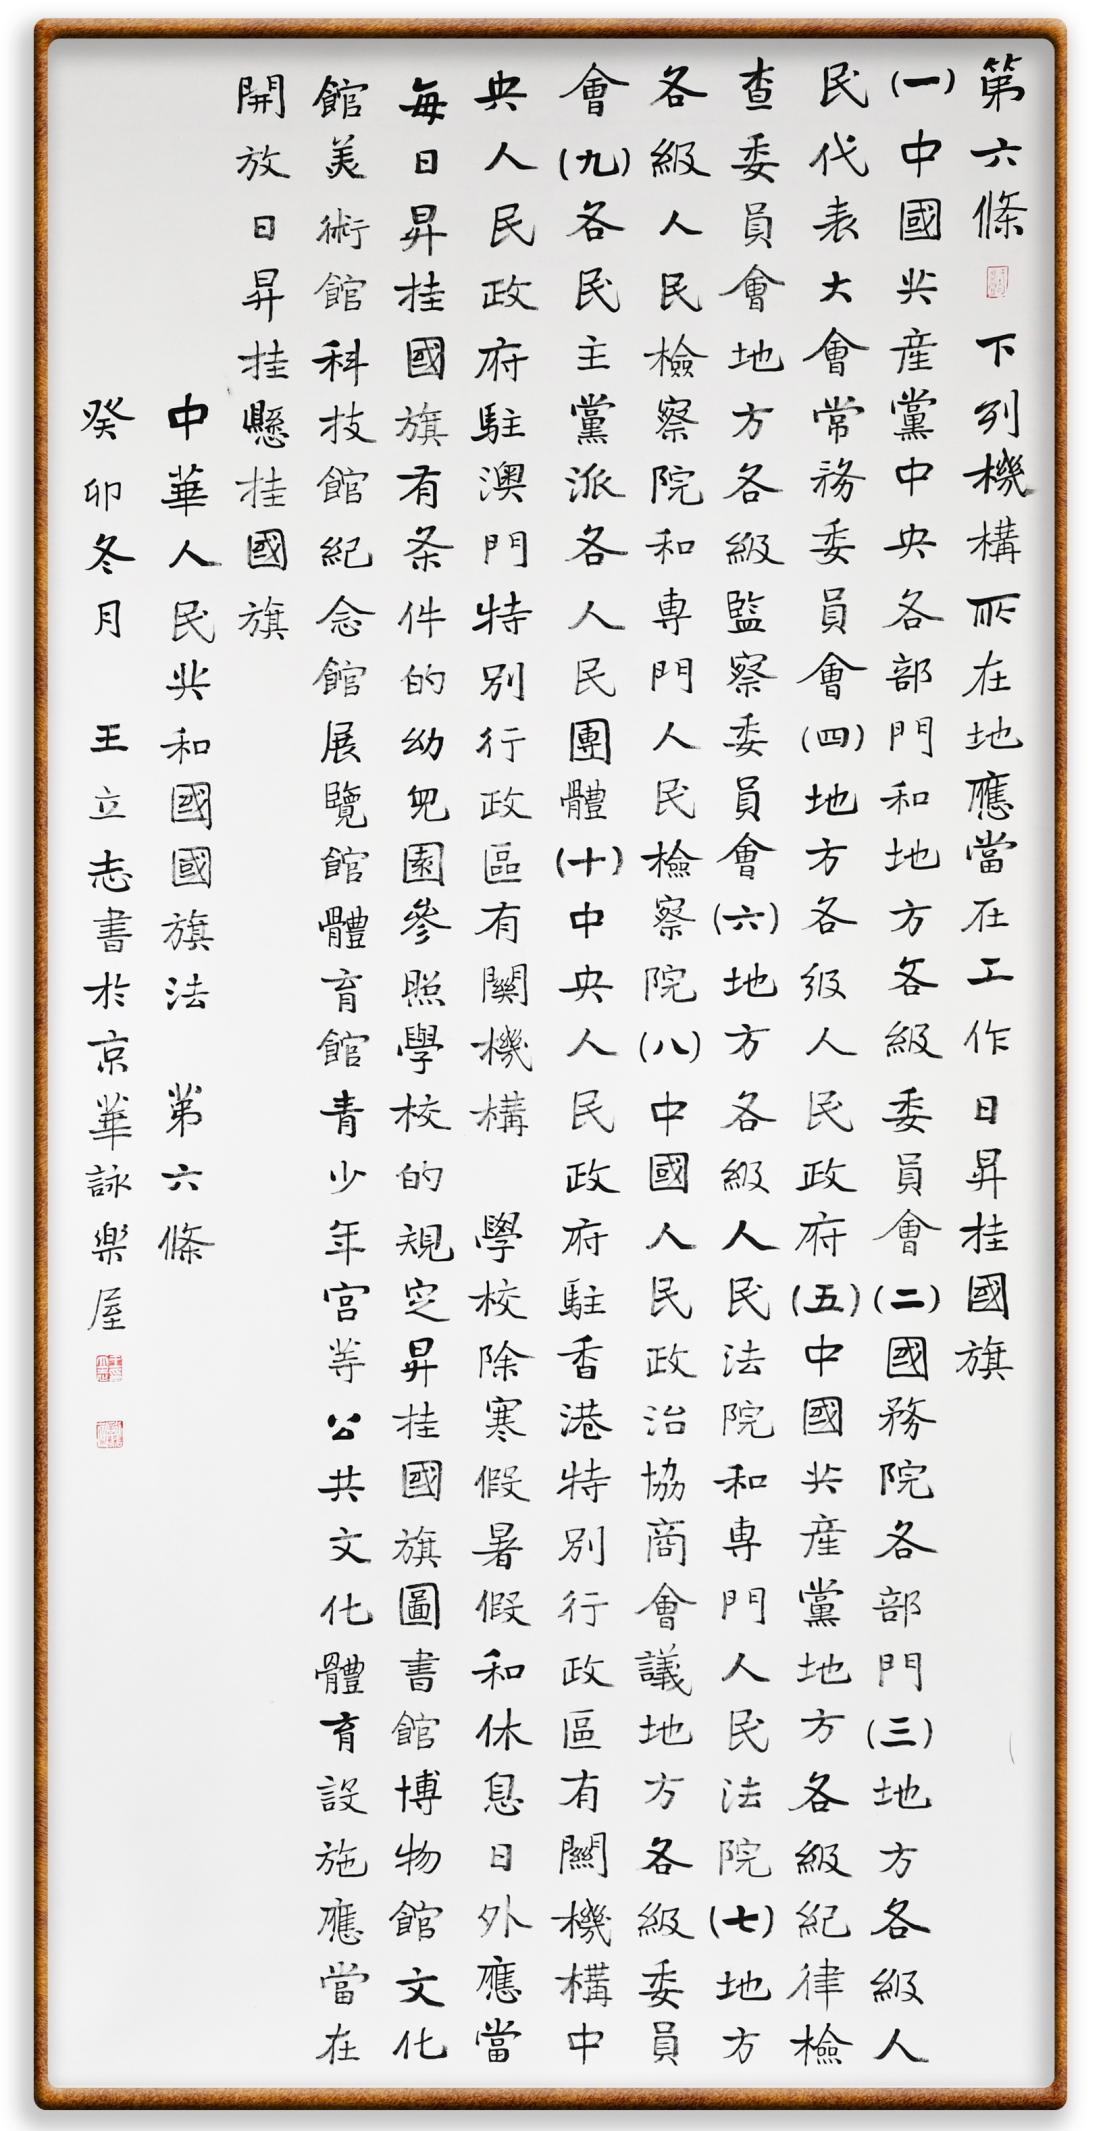 第六條 下列機構所在地應當在工作日昇挂國旗
(一)中國共産黨中央各部門和地方各級委員會(二)國務院各部門(三)地方各級人
民代表大會常務委員會(四)地方各級人民政府(五)中國共産黨地方各級紀律檢
查委員會地方各級監察委員會(六)地方各級人民法院和専門人民法院(七)地方
各級人民檢察院和専門人民檢察院(八)中國人民政治協商會議地方各級委員
會(九)各民主黨派各人民團體(十)中央人民政府駐香港特別行政區有關機構中
央人民政府駐澳門特別行政區有關機構 學校除寒假暑假和休息日外應當
每日昇挂國旗有条件的幼兒園參照學校的規定昇挂國旗圖書館博物館文化
館美術館科技館紀念館展覽館體育館青少年宮等公共文化體育設施應當在
開放日昇挂懸挂國旗
中華人民共和國國旗法 第六條
癸卯冬月 王立志書於京華詠樂屋